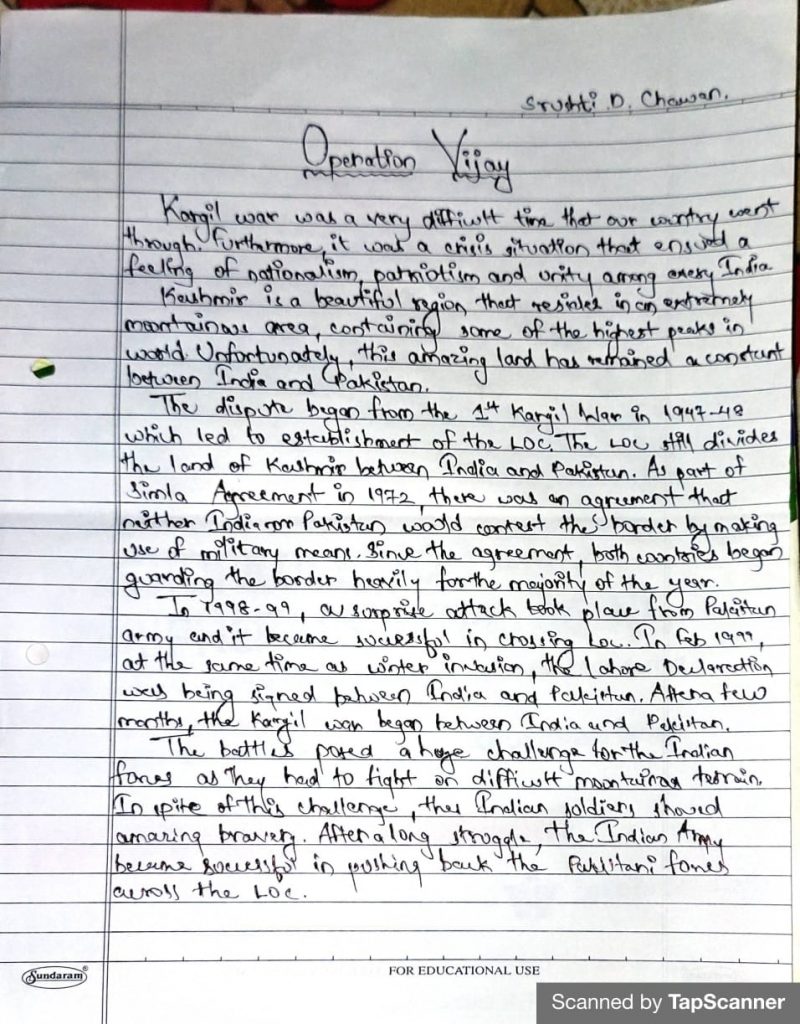 Srushti D. Chawan.
Operation Vijay
Kargil war was a very difficult time that our country went
through. Furthermore, it was a crisis situation that ensued a
feeling of nationalism, patriotism and unity among every India
Kashmir is a beautiful region that resides in an extremely
mountainous area, containing some of the highest peaks in
world. Unfortunately, this amazing land has remained a constant
between India and Pakistan.
The dispute began from the 1st Kargil War in 1947-48
which led to establishment of the LOC. The LOC still divides
the land of Kashmir between India and Pakistan. As part of
Simla Agreement in 1972, there was an agreement that
neither India nor Pakistan would contest the border by making
use of military means. Since the agreement, both countries began
guarding the border heavily for the majority of the year.
In 1998-99, a surprise attack took place from Pakistan
army and it became successful in crossing LOC. In Feb 1999,
at the same time as winter invasion, the Lahore Declaration
was being signed between India and Pakistan. After a few
months, the Kargil war began between India and Pakistan.
The battles posed a huge challenge for the Indian
forces as they had to fight on difficult mountainous terrain.
In spite of this challenge, the Indian soldiers showed
amazing bravery. After a long struggle, the Indian Army
became successful in pushing back the Pakistani forces
across the LOC.
Sundaram®
FOR EDUCATIONAL USE
Scanned by TapScanner